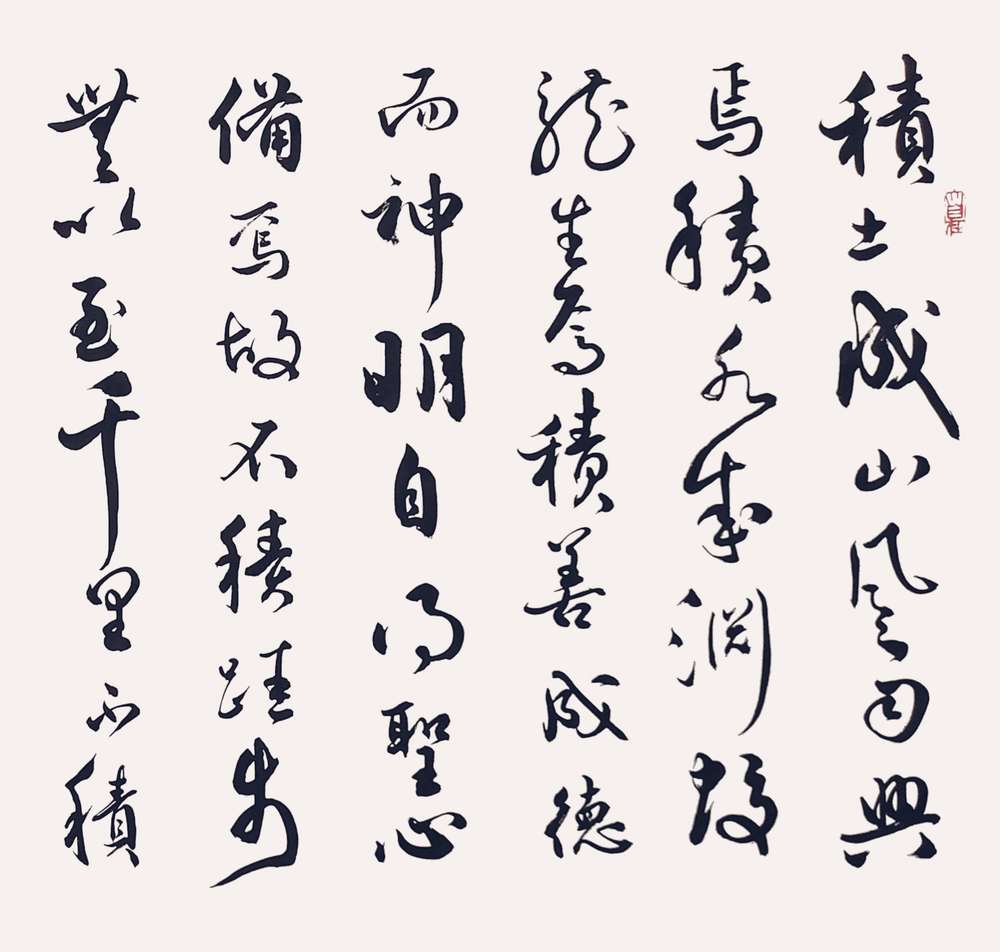 積土成山風雨興
焉積水成淵蛟
龍生焉積善成德
而神明自得聖心
備焉故不積跬步
無以至千里不積